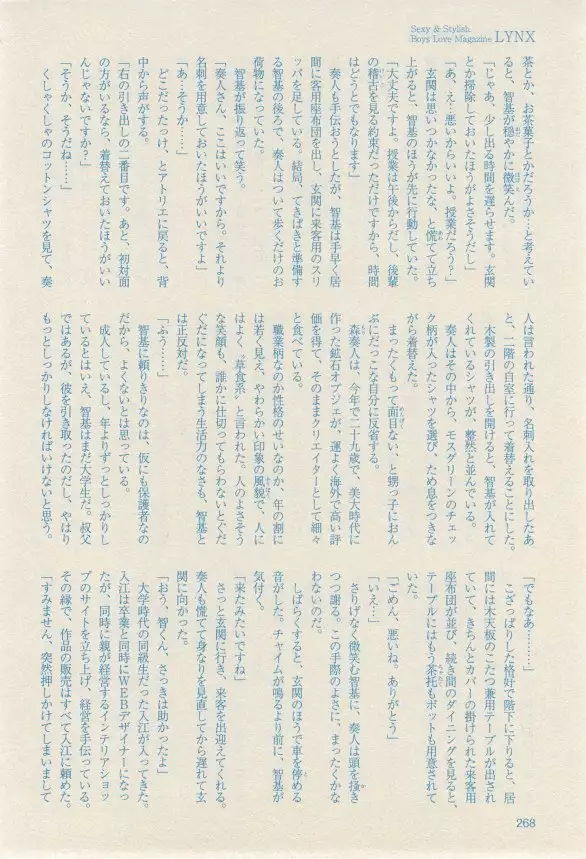 Sexy & Stylish
Boys Love Magazine LYNX
茶とか、お茶菓子とかだろうか…と考えてい
ると、智基が穏やかに微笑んだ。
「じゃあ、少し出る時間を遅らせます。玄関
とか掃除しておいたほうがよさそうだし」
「あ、え…悪いからいいよ。授業だろう?」
玄関は思いつかなかったな、と慌てて立ち
上がると、智基のほうが先に行動していた。
「大丈夫ですよ。授業は午後からだし、後輩
の稽古を見る約束だっただけですから、時間
はどうとでもなります」
奏人も手伝おうとしたが、智基は手早く居
間に客用座布団を出し、玄関に来客用のスリ
ッパを足している。結局、てきぱきと準備す
る智基の後ろで、奏人はついて歩くだけのお
荷物になっていた。
智基が振り返って笑う。
「奏人さん、ここはいいですから。それより
名刺を用意しておいたほうがいいですよ」
「あ…そうか……」
どこだったっけ、とアトリエに戻ると、背
中から声がする。
「右の引き出しの二番目です。あと、初対面
の方がいるなら、着替えておいたほうがいい
んじゃないですか?」
「そうか、そうだね……」
くしゃくしゃのコットンシャツを見て、奏
人は言われた通り、名刺入れを取り出したあ
と、二階の自室に行って着替えることにした。
木製の引き出しを開けると、智基が入れて
くれているシャツが、整然と並んでいる。
奏人はその中から、モスグリーンのチェッ
ク柄が入ったシャツを選び、ため息をつきな
がら着替えた。
まったくもって面目ない、と甥っ子におん
ぶにだっこな自分に反省する。
森奏人は、今年で二十九歳で、美大時代に
作った鉱石オブジェが、運よく海外で高い評
価を得て、そのままクリエイターとして細々
と食べている。
職業柄なのか性格のせいなのか、年の割に
は若く見え、やわらかい印象の風貌で、人に
はよく〝草食系〟と言われた。人のよさそう
な笑顔も、誰かに仕切ってもらわないとぐだ
ぐだになってしまう生活力のなさも、智基と
は正反対だ。
「ふう……」
智基に頼りきりなのは、仮にも保護者なの
だから、よくないとは思っている。
成人しているし、年よりずっとしっかりし
ているとはいえ、智基はまだ大学生だ。叔父
ではあるが、彼を引き取ったのだし、やはり
もっとしっかりしなければいけないと思う。
「でもなあ………」
こざっぱりした格好で階下に下りると、居
間には木天板のこたつ兼用テーブルが出され
ていて、きちんとカバーの掛けられた来客用
座布団が並び、続き間のダイニングを見ると、
テーブルにはもう茶托もポットも用意されて
いた。
「ごめん、悪いね。ありがとう」
「いえ…」
さりげなく微笑む智基に、奏人は頭を掻き
つつ謝る。この手際のよさに、まったくかな
わないのだ。
しばらくすると、玄関のほうで車を停める
音がした。チャイムが鳴るより前に、智基が
気付く。
「来たみたいですね」
さっと玄関に行き、来客を出迎えてくれる。
奏人も慌てて身なりを見直してから遅れて玄
関に向かった。
「おう、智くん、さっきは助かったよ」
大学時代の同級生だった入江が入ってきた。
入江は卒業と同時にWEBデザイナーになっ
たが、同時に親が経営するインテリアショッ
プのサイトを立ち上げ、経営を手伝っている。
その縁で、作品の販売はすべて入江に頼めた。
「すみません、突然押しかけてしまいまして
268